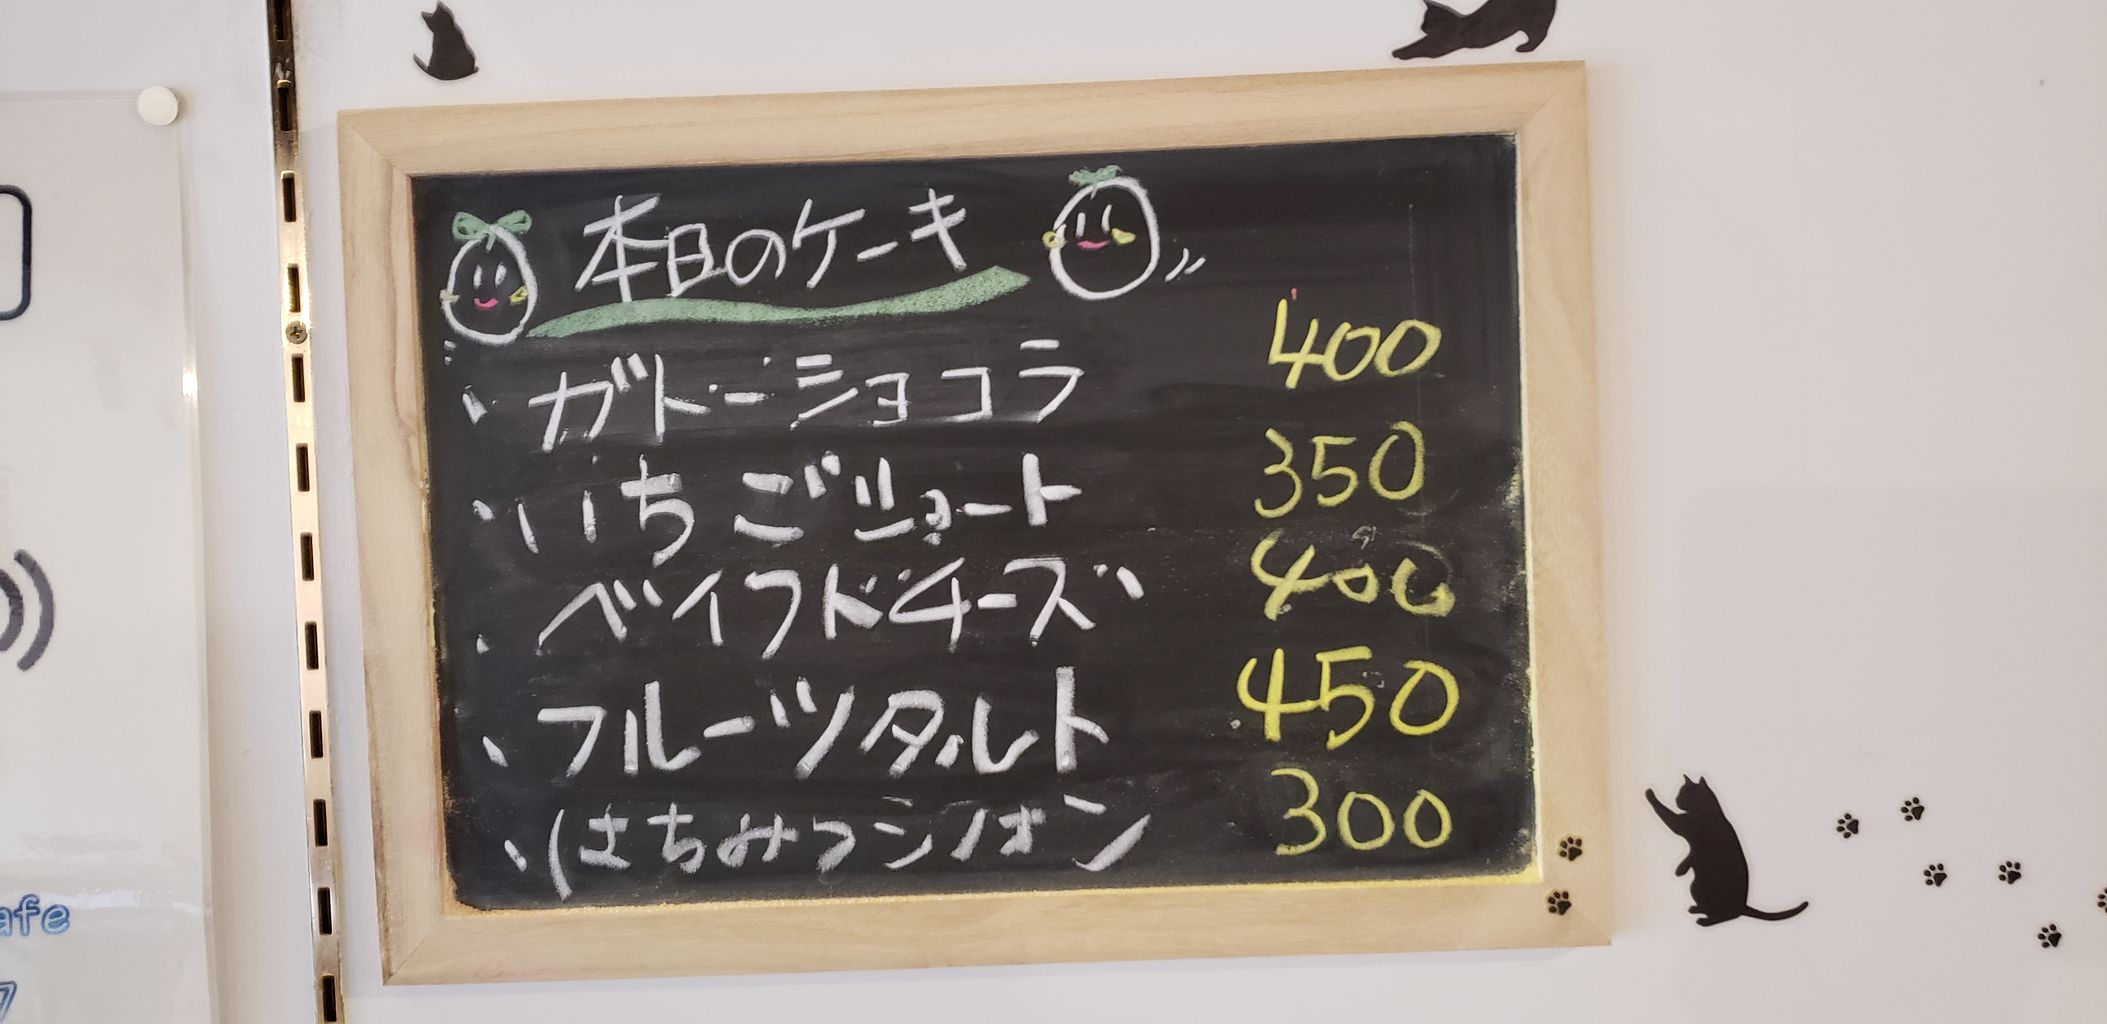 本日のケーキ
・ガトーショコラ 400
・いちごショート 350
・ベイクドチーズ 400
・フルーツタルト 450
・はちみつシフォン 300
afe
7